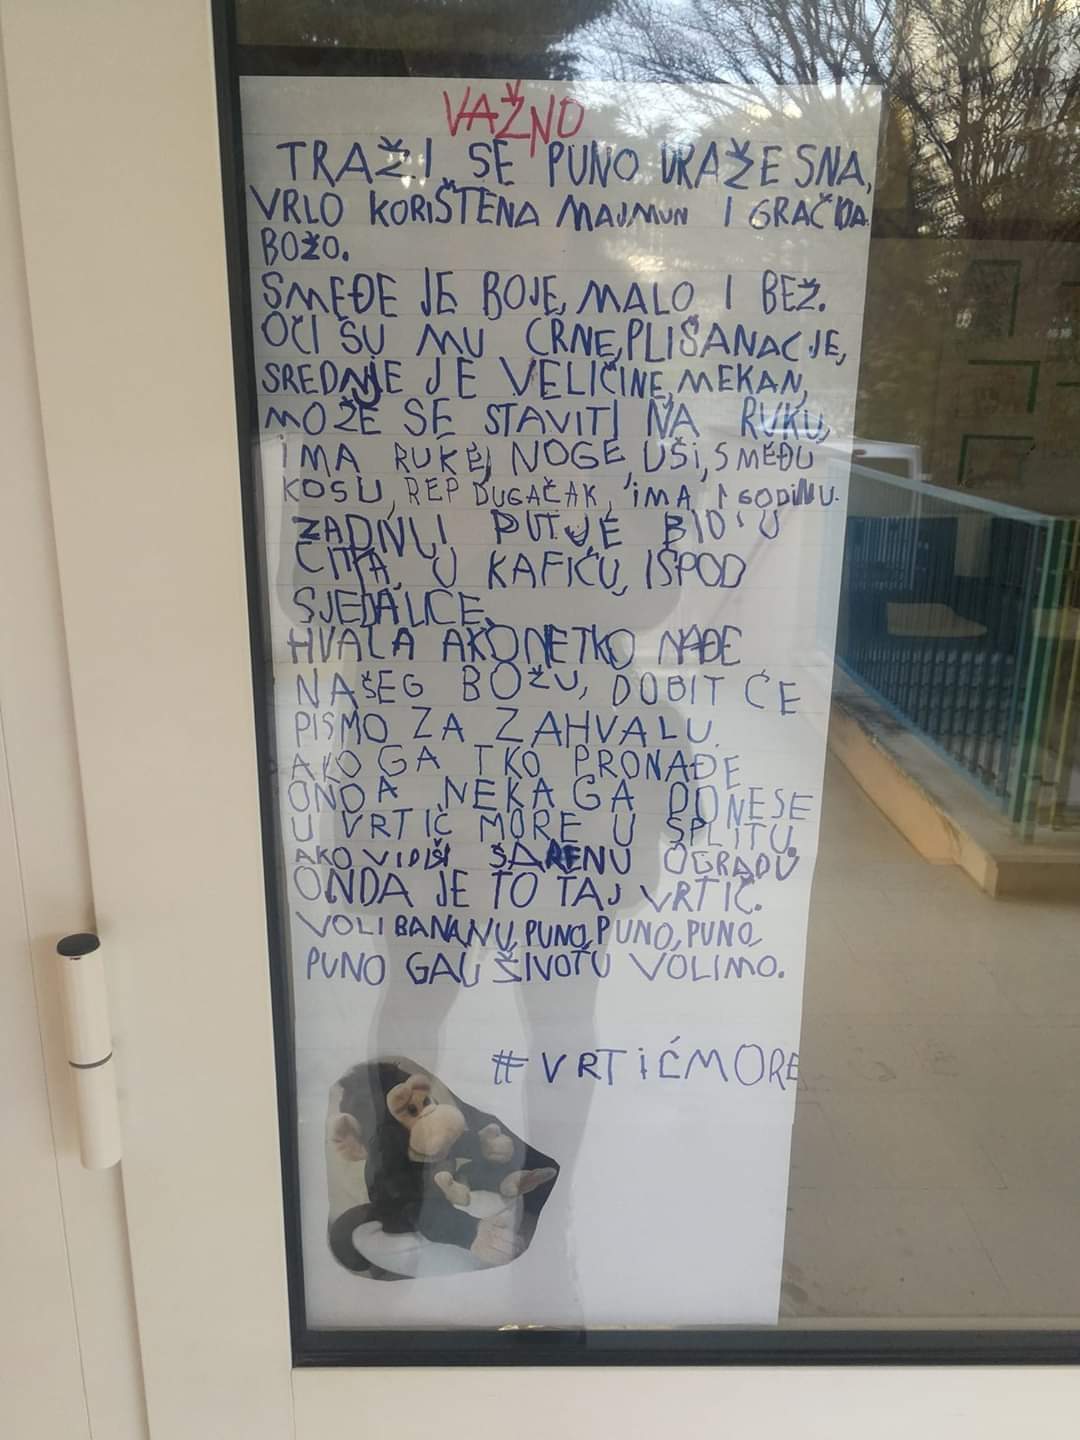 VAŽNO
TRAŽI SE PUNO DRAŽESNA,
VRLO KORIŠTENA MAJMUN IGRAČKA
BOŽO.
SMEĐE JE BOJE, MALO I BEŽ.
OČI SU MU CRNE, PLIŠANAC JE,
SREDNJE JE VELIČINE, MEKAN,
MOŽE SE STAVITI NA RUKU,
IMA RUKE, NOGE, UŠI, SMEĐU
KOSU, REP DUGAČAK, IMA 1 GODINU.
ZADNJI PUT JE BIO U
ČITA, U KAFIĆU, ISPOD
SJEDALICE.
HVALA AKO NETKO NAĐE
NAŠEG BOŽU, DOBIT ĆE
PISMO ZA ZAHVALU.
AKO GA TKO PRONAĐE
ONDA NEKA GA DONESE
U VRTIĆ MORE U SPLITU.
AKO VIDIŠ ŠARENU OGRADU
ONDA JE TO TAJ VRTIČ.
VOLI BANANU, PUNO, PUNO, PUNO,
PUNO GA U ŽIVOTU VOLIMO.
#VRTIĆMORE